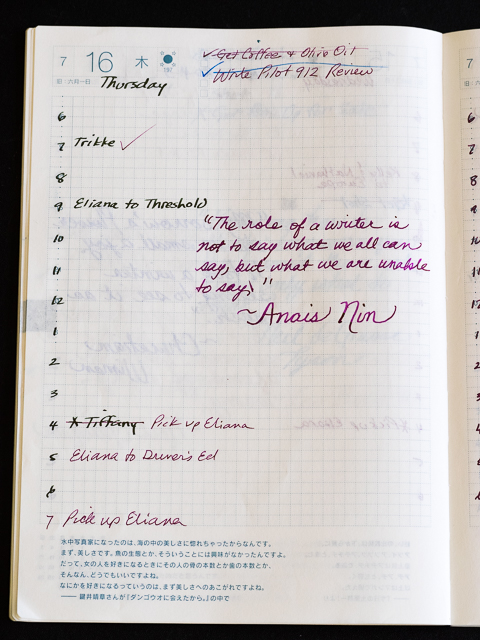 7 16 木 197
旧:六月一日
Thursday
✓ Get Coffee & Olive Oil
✓ Write Pilot 912 Review
6
7 Trikke ✓
8
9 Eliana to Threshold
10
11
12
1
2
3
4 * Tiffany Pick up Eliana
5 Eliana to Driver's Ed
6
7 Pick up Eliana
"The role of a writer is
not to say what we all can
say, but what we are unable
to say."
~Anais Nin
水中写真家になったのは、海の中の美しさに惚れちゃったからなんです。
まず、美しさです。魚の生態とか、そういうことには興味がなかったんですよ。
だって、女の人を好きになるときにその人の骨の本数とか歯の本数とか、
そんなん、どうでもいいですよね。
なにかを好きになるっていうのは、まず美しさへのあこがれですよね。
―― 鍵井靖章さんが『ダンゴウオに会えたから。』の中で
7
6
7
8
9
10
11
12
1
2
3
4
5
6